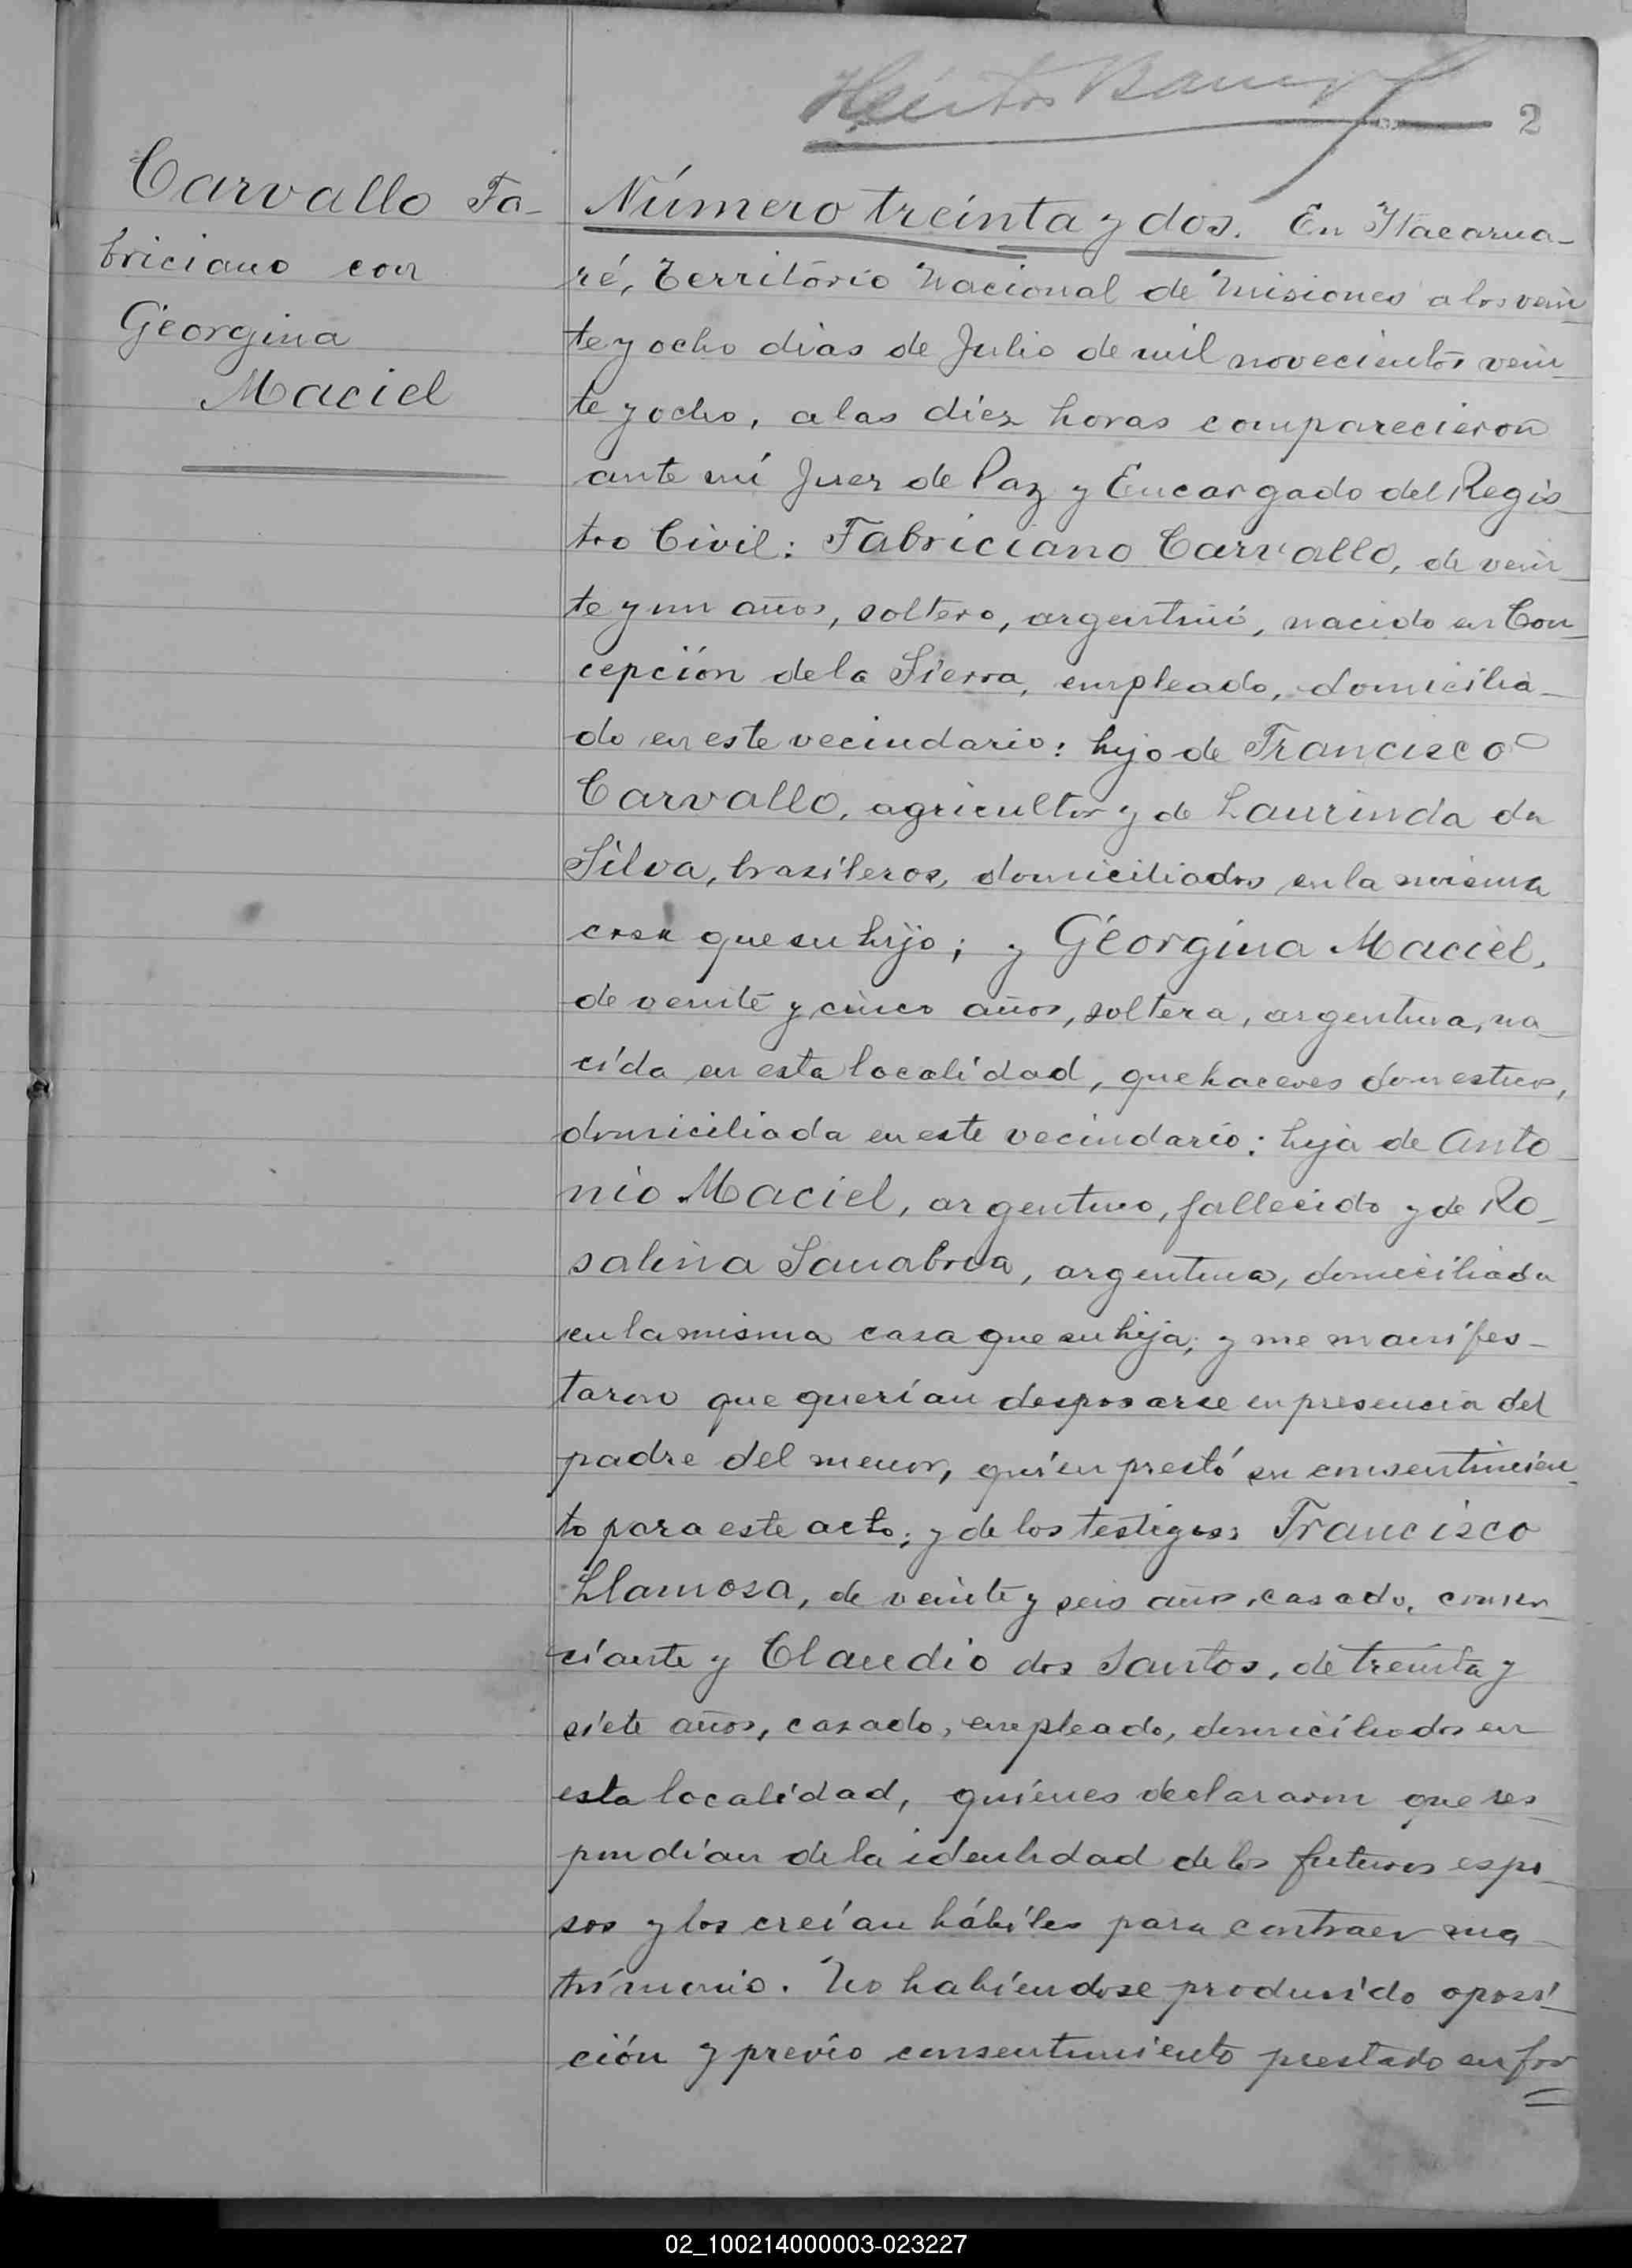 2
Carvallo Fa-
briciano con
Georgina
Maciel
Número treinta y dos. En Itacarua-
ré, Territorio Nacional de Misiones a los vein-
te y ocho dias de Julio de mil novecientos vein-
te y ocho, a las diez horas comparecieron
ante mí Juez de Paz y Encargado del Regis-
tro Civil: Fabriciano Carvallo, de vein-
te y un años, soltero, argentino, nacido en Con-
cepción de la Sierra, empleado, domicilia-
do en este vecindario: hijo de Francisco
Carvallo, agricultor y de Laurinda da
Silva, brasileros, domiciliados en la misma
casa que su hijo; y Georgina Maciel,
de veinte y cinco años, soltera, argentina, na-
cida en esta localidad, quehaceres domesticos,
domiciliada en este vecindario: hija de Anto-
nio Maciel, argentino, fallecido y de Ro-
salina Sanabria, argentina, domiciliada
en la misma casa que su hija; y me manifes-
taron que querían desposarse en presencia del
padre del menor, quien prestó su consentimien-
to para este acto; y de los testigos: Francisco
Llamosa, de veinte y seis años, casado, comer-
ciante y Claudio dos Santos, de treinta y
siete años, casado, empleado, domiciliados en
esta localidad, quienes declararon que res-
pondían de la identidad de los futuros espo-
sos y los creían hábiles para contraer ma-
trimonio. No habiendose producido oposi-
ción y previo consentimiento prestado en for
02_100214000003-023227